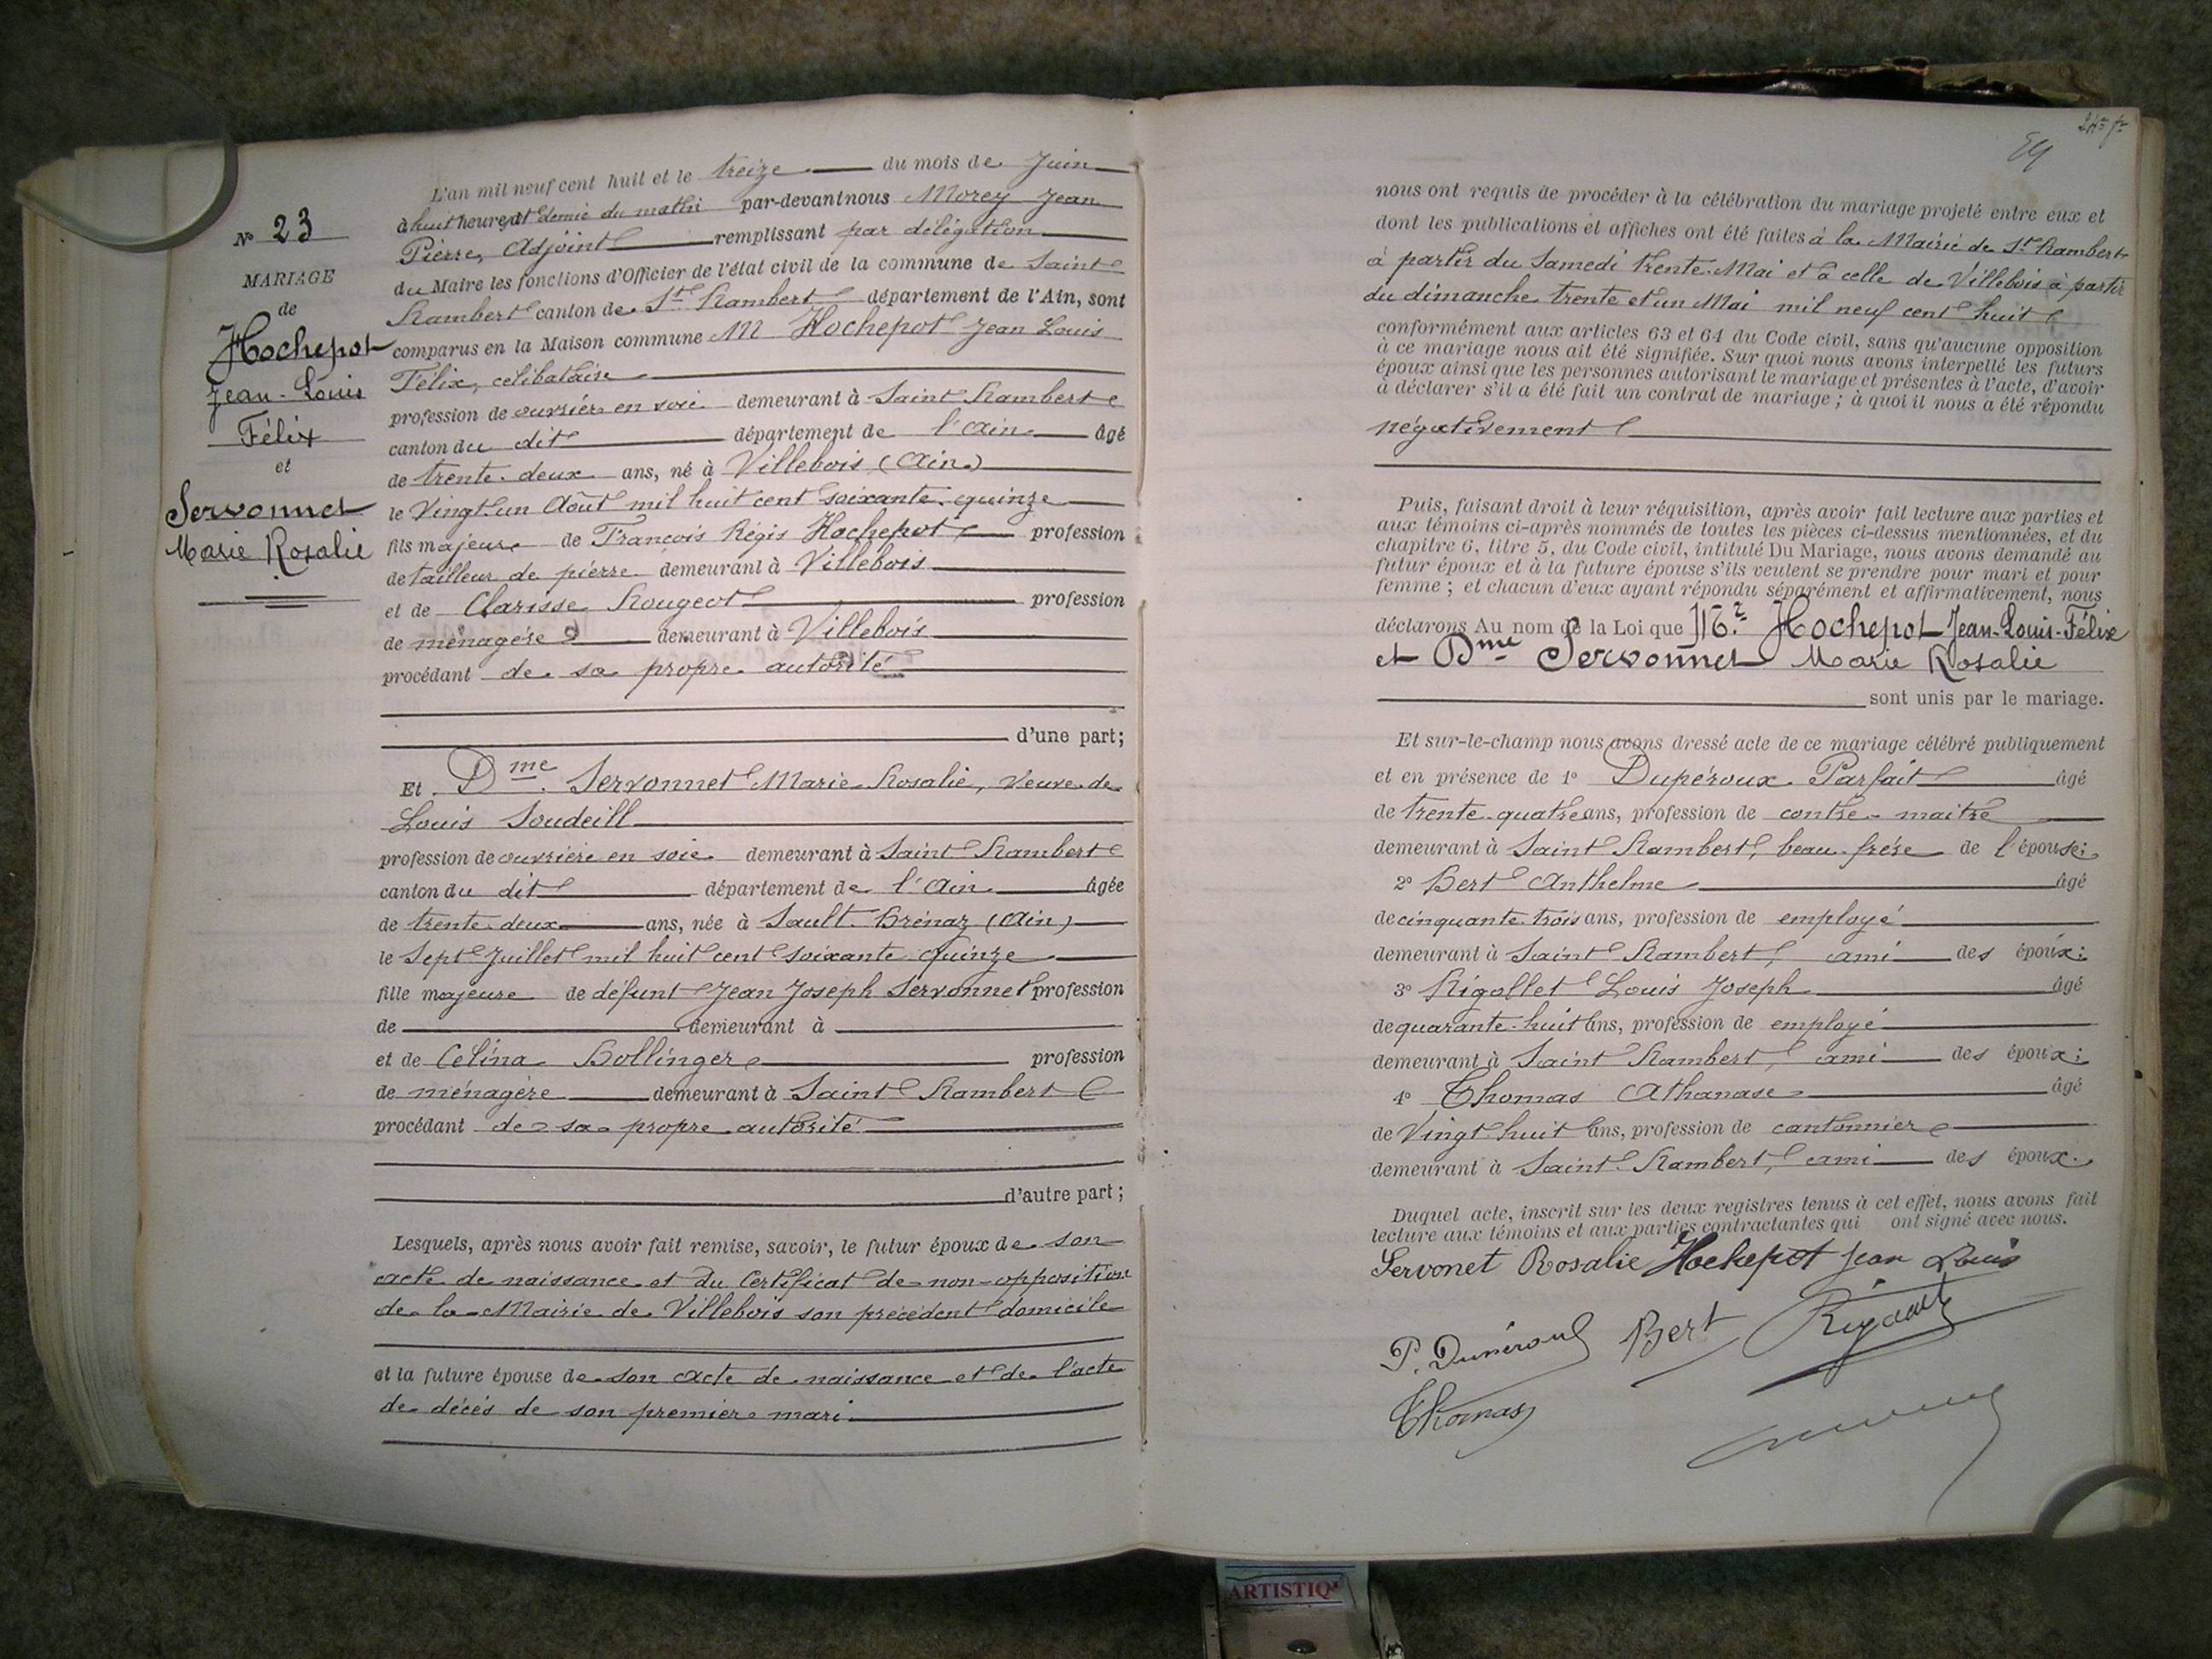 N° 23
MARIAGE
de
Hochepot
Jean-Louis
Félix
et
Servonnet
Marie Rosalie
L'an mil neuf cent huit et le treize du mois de Juin
à huit heures et demie du matin par-devant nous Morey Jean
Pierre, Adjoint remplissant par délégation
du Maire les fonctions d'Officier de l'état civil de la commune de Saint
Rambert canton de St Rambert département de l'Ain, sont
comparus en la Maison commune M Hochepot Jean Louis
Félix, célibataire
profession de ouvrier en soie demeurant à Saint Rambert
canton du dit département de l'Ain âgé
de trente-deux ans, né à Villebois (Ain)
le Vingt-un Août mil huit cent soixante-quinze
fils majeur de François Régis Hochepot profession
de tailleur de pierre demeurant à Villebois
et de Clarisse Rougeot profession
de ménagère demeurant à Villebois
procédant de sa propre autorité
d'une part;
Et Dme Servonnet Marie Rosalie, Veuve de
Louis Soudeill
profession de ouvrière en soie demeurant à Saint Rambert
canton du dit département de l'Ain âgée
de trente-deux ans, née à Sault-Brénaz (Ain)
le Sept Juillet mil huit cent soixante quinze
fille majeure de défunt Jean Joseph Servonnet profession
de demeurant à
et de Celina Bollinger profession
de ménagère demeurant à Saint Rambert
procédant de sa propre autorité
d'autre part;
Lesquels, après nous avoir fait remise, savoir, le futur époux de son
acte de naissance et du Certificat de non-opposition
de la Mairie de Villebois son précédent domicile
et la future épouse de son acte de naissance et de l'acte
de décès de son premier mari
nous ont requis de procéder à la célébration du mariage projeté entre eux et
dont les publications et affiches ont été faites à la Mairie de St Rambert
à partir du Samedi trente Mai et à celle de Villebois à partir
du dimanche trente et un Mai mil neuf cent huit
conformément aux articles 63 et 64 du Code civil, sans qu'aucune opposition
à ce mariage nous ait été signifiée. Sur quoi nous avons interpellé les futurs
époux ainsi que les personnes autorisant le mariage et présentes à l'acte, d'avoir
à déclarer s'il a été fait un contrat de mariage; à quoi il nous a été répondu
négativement
Puis, faisant droit à leur réquisition, après avoir fait lecture aux parties et
aux témoins ci-après nommés de toutes les pièces ci-dessus mentionnées, et du
chapitre 6, titre 5, du Code civil, intitulé Du Mariage, nous avons demandé au
futur époux et à la future épouse s'ils veulent se prendre pour mari et pour
femme; et chacun d'eux ayant répondu séparément et affirmativement, nous
déclarons Au nom de la Loi que Mr Hochepot Jean-Louis-Félix
et Dme Servonnet Marie Rosalie
sont unis par le mariage.
Et sur-le-champ nous avons dressé acte de ce mariage célébré publiquement
et en présence de 1° Dupéroux Parfait âgé
de trente-quatre ans, profession de contre-maitre
demeurant à Saint Rambert, beau-frère de l'épouse;
2° Bert Anthelme âgé
de cinquante-trois ans, profession de employé
demeurant à Saint Rambert, ami des époux;
3° Rigollet Louis Joseph âgé
de quarante-huit ans, profession de employé
demeurant à Saint Rambert, ami des époux;
4° Thomas Athanase âgé
de Vingt-huit ans, profession de cantonnier
demeurant à Saint Rambert, ami des époux.
Duquel acte, inscrit sur les deux registres tenus à cet effet, nous avons fait
lecture aux témoins et aux parties contractantes qui ont signé avec nous.
Servonet Rosalie Hochepot Jean Louis
P. Dupéroux Bert
Thomas
ARTISTIQ